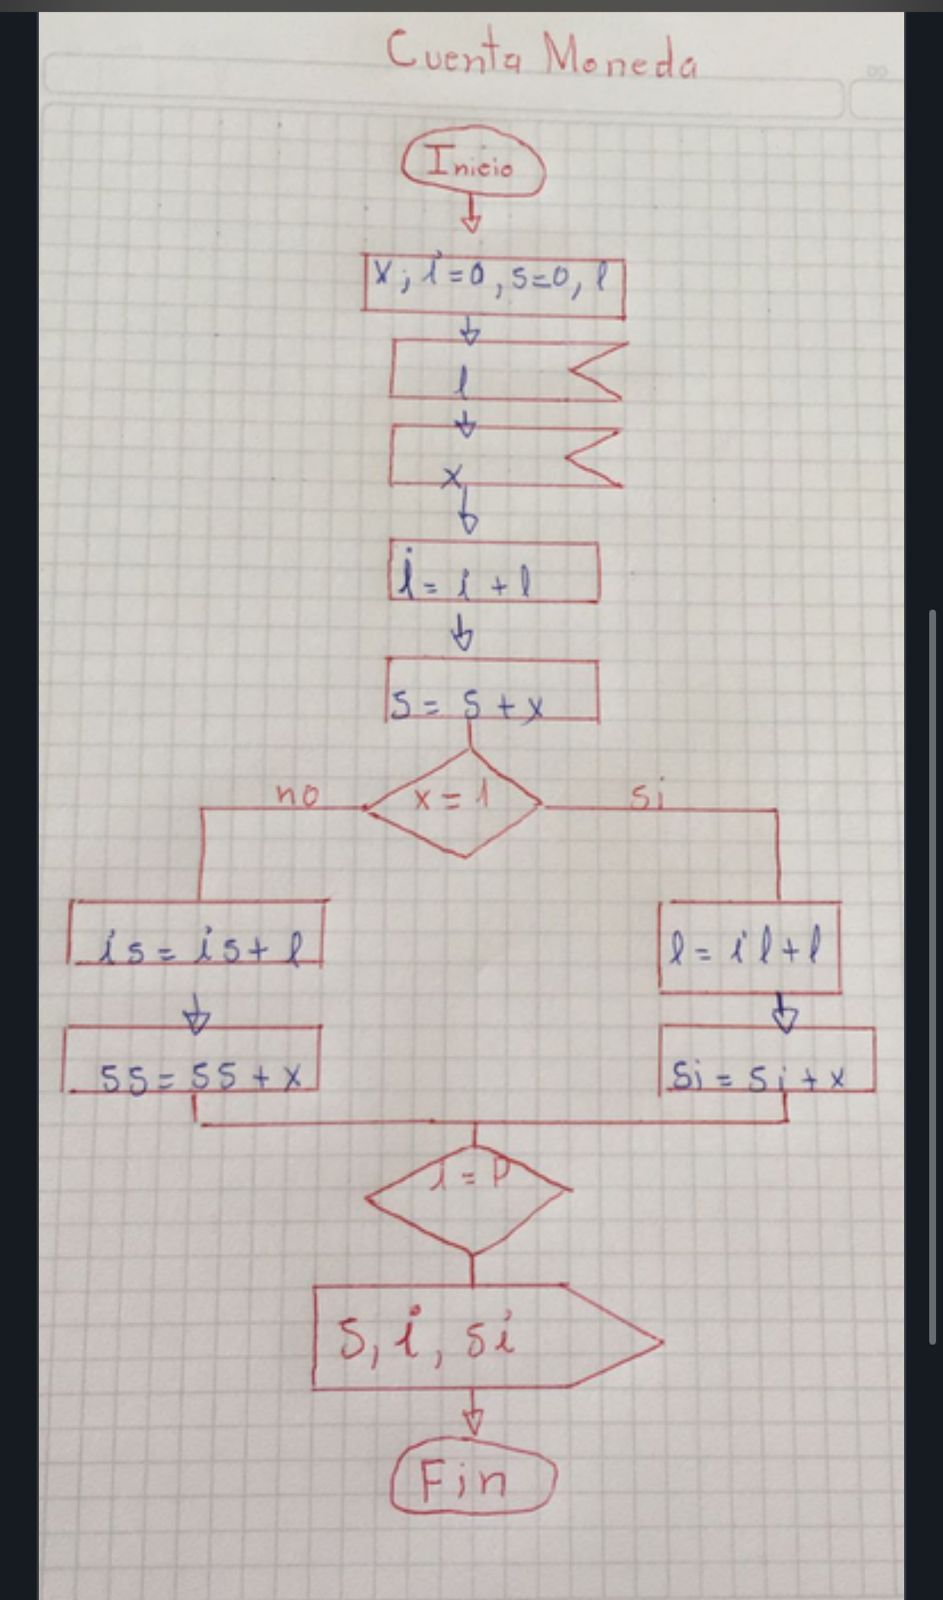 Cuenta Moneda
Inicio
x, i=0, s=0, l
l
x
i = i + l
s = s + x
no
x = 1
si
is = is + l
l = il + l
ss = ss + x
si = si + x
i = P
s, i, si
Fin